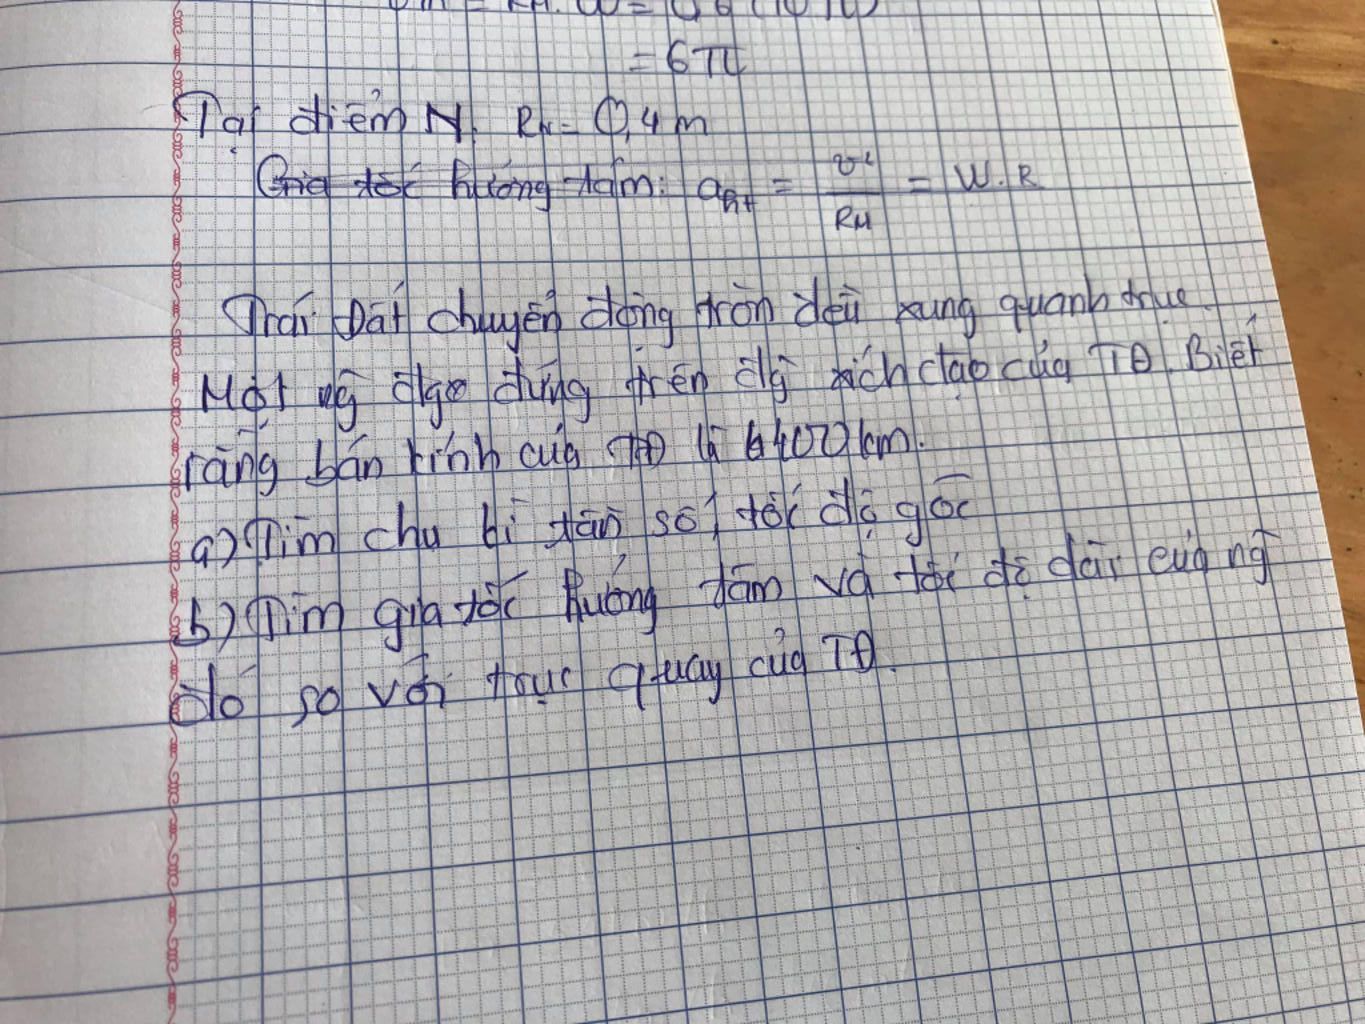 = 6π
Tại điểm N. RN = 0,4 m
Gia tốc hướng tâm: aht = v²/RM = W.R
Trái Đất chuyển động tròn đều xung quanh trục.
Một ng đứng trên xích đạo của TĐ. Biết
rằng bán kính của TĐ là 6400km.
a) Tìm chu kì tần số, tốc độ góc
b) Tìm gia tốc hướng tâm và tốc độ dài của ng
đó so với trục quay của TĐ.